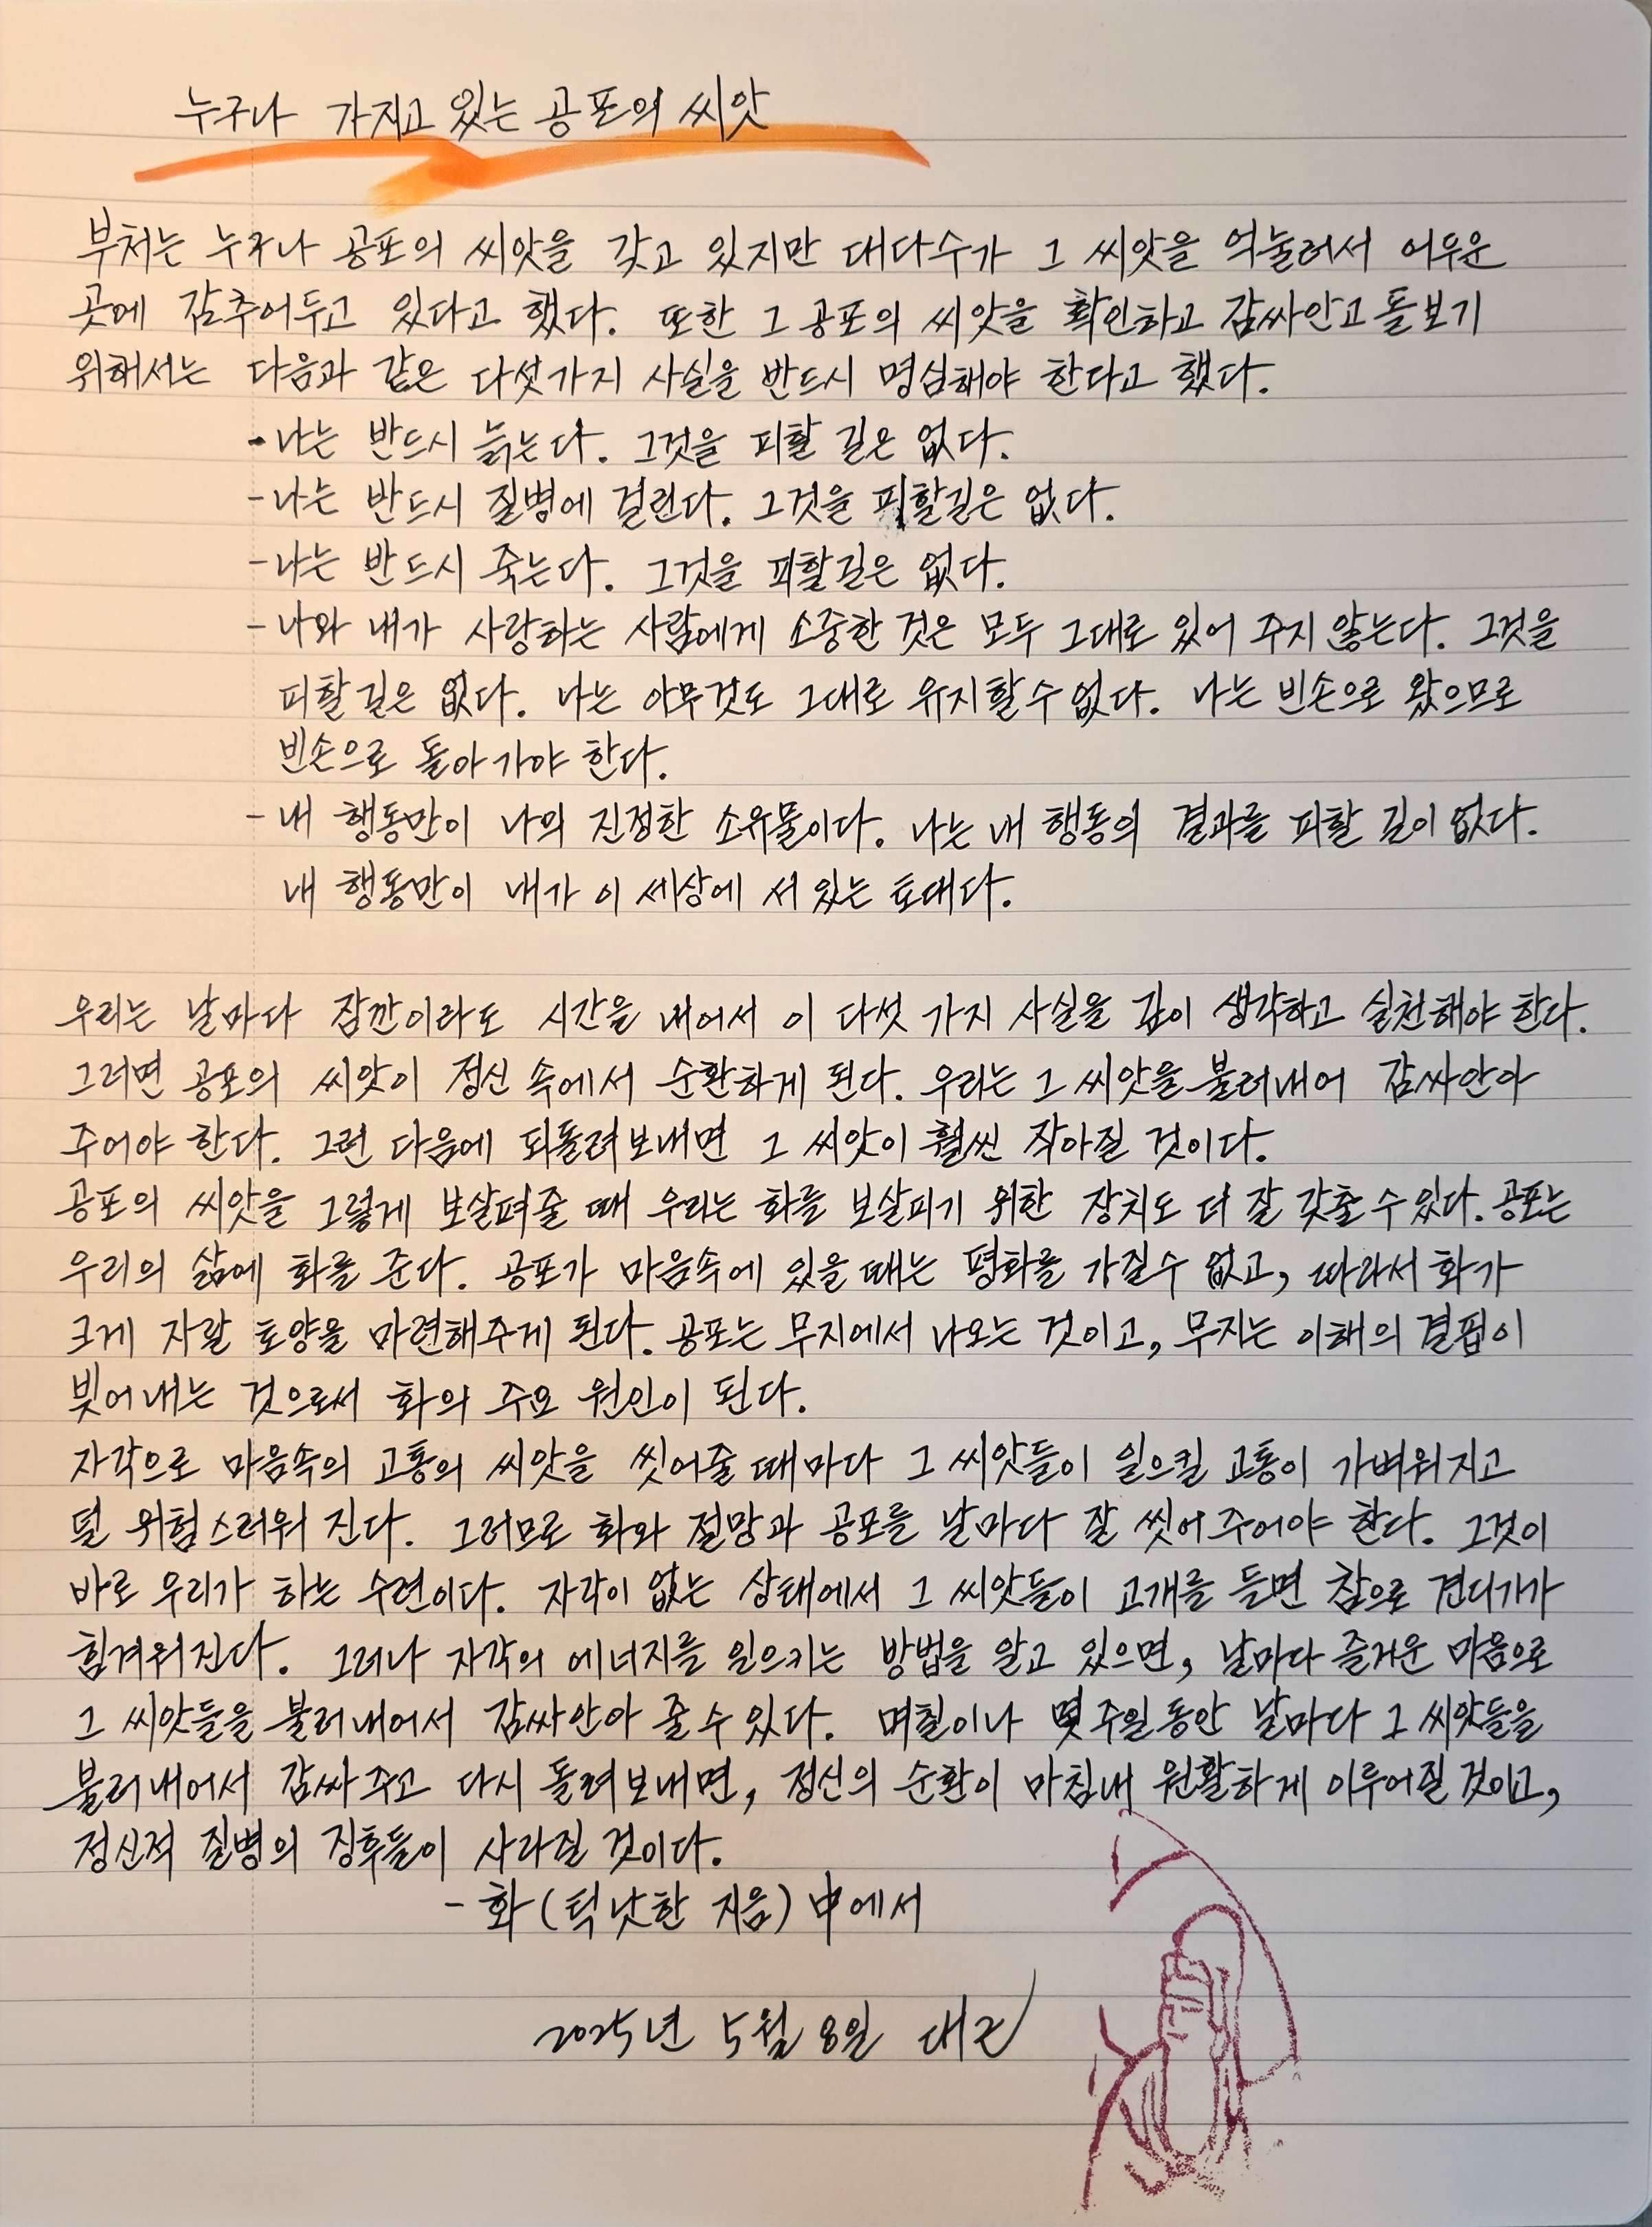 누구나 가지고 있는 공포의 씨앗
부처는 누구나 공포의 씨앗을 갖고 있지만 대다수가 그 씨앗을 억눌러서 어두운
곳에 감추어두고 있다고 했다. 또한 그 공포의 씨앗을 확인하고 감싸안고 돌보기
위해서는 다음과 같은 다섯가지 사실을 반드시 명심해야 한다고 했다.
- 나는 반드시 늙는다. 그것을 피할 길은 없다.
- 나는 반드시 질병에 걸린다. 그것을 피할길은 없다.
- 나는 반드시 죽는다. 그것을 피할길은 없다.
- 나와 내가 사랑하는 사람에게 소중한 것은 모두 그대로 있어 주지 않는다. 그것을
피할 길은 없다. 나는 아무것도 그대로 유지할수 없다. 나는 빈손으로 왔으므로
빈손으로 돌아가야 한다.
- 내 행동만이 나의 진정한 소유물이다. 나는 내 행동의 결과를 피할 길이 없다.
내 행동만이 내가 이 세상에 서 있는 토대다.
우리는 날마다 잠깐이라도 시간을 내어서 이 다섯 가지 사실을 깊이 생각하고 실천해야 한다.
그러면 공포의 씨앗이 정신 속에서 순환하게 된다. 우리는 그 씨앗을 불러내어 감싸안아
주어야 한다. 그런 다음에 되돌려보내면 그 씨앗이 훨씬 작아질 것이다.
공포의 씨앗을 그렇게 보살펴줄 때 우리는 화를 보살피기 위한 장치도 더 잘 갖출 수 있다. 공포는
우리의 삶에 화를 준다. 공포가 마음속에 있을 때는 평화를 가질수 없고, 따라서 화가
크게 자랄 토양을 마련해주게 된다. 공포는 무지에서 나오는 것이고, 무지는 이해의 결핍이
빚어내는 것으로써 화의 주요 원인이 된다.
자각으로 마음속의 고통의 씨앗을 씻어줄 때마다 그 씨앗들이 일으킬 고통이 가벼워지고
덜 위험스러워 진다. 그러므로 화와 절망과 공포를 날마다 잘 씻어주어야 한다. 그것이
바로 우리가 하는 수련이다. 자각이 없는 상태에서 그 씨앗들이 고개를 들면 참으로 견디기가
힘겨워진다. 그러나 자각의 에너지를 일으키는 방법을 알고 있으면, 날마다 즐거운 마음으로
그 씨앗들을 불러내어서 감싸안아 줄 수 있다. 며칠이나 몇 주일 동안 날마다 그 씨앗들을
불러내어서 감싸주고 다시 돌려보내면, 정신의 순환이 마침내 원활하게 이루어질 것이고,
정신적 질병의 징후들이 사라질 것이다.
- 화(틱낫한 지음) 中에서
2025년 5월 8일 대근